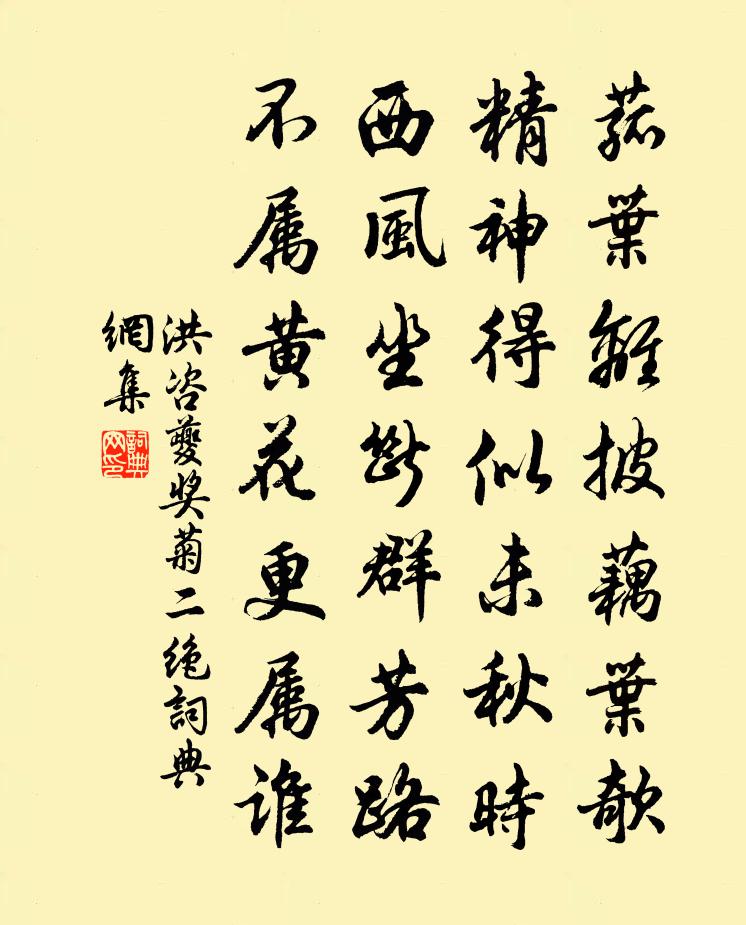 菰葉離披藕葉欹
精神得似未秋時
西風坐斷群芳路
不属黄花更属誰
洪咨夔奬菊二絶詞典
網集
詞典網印